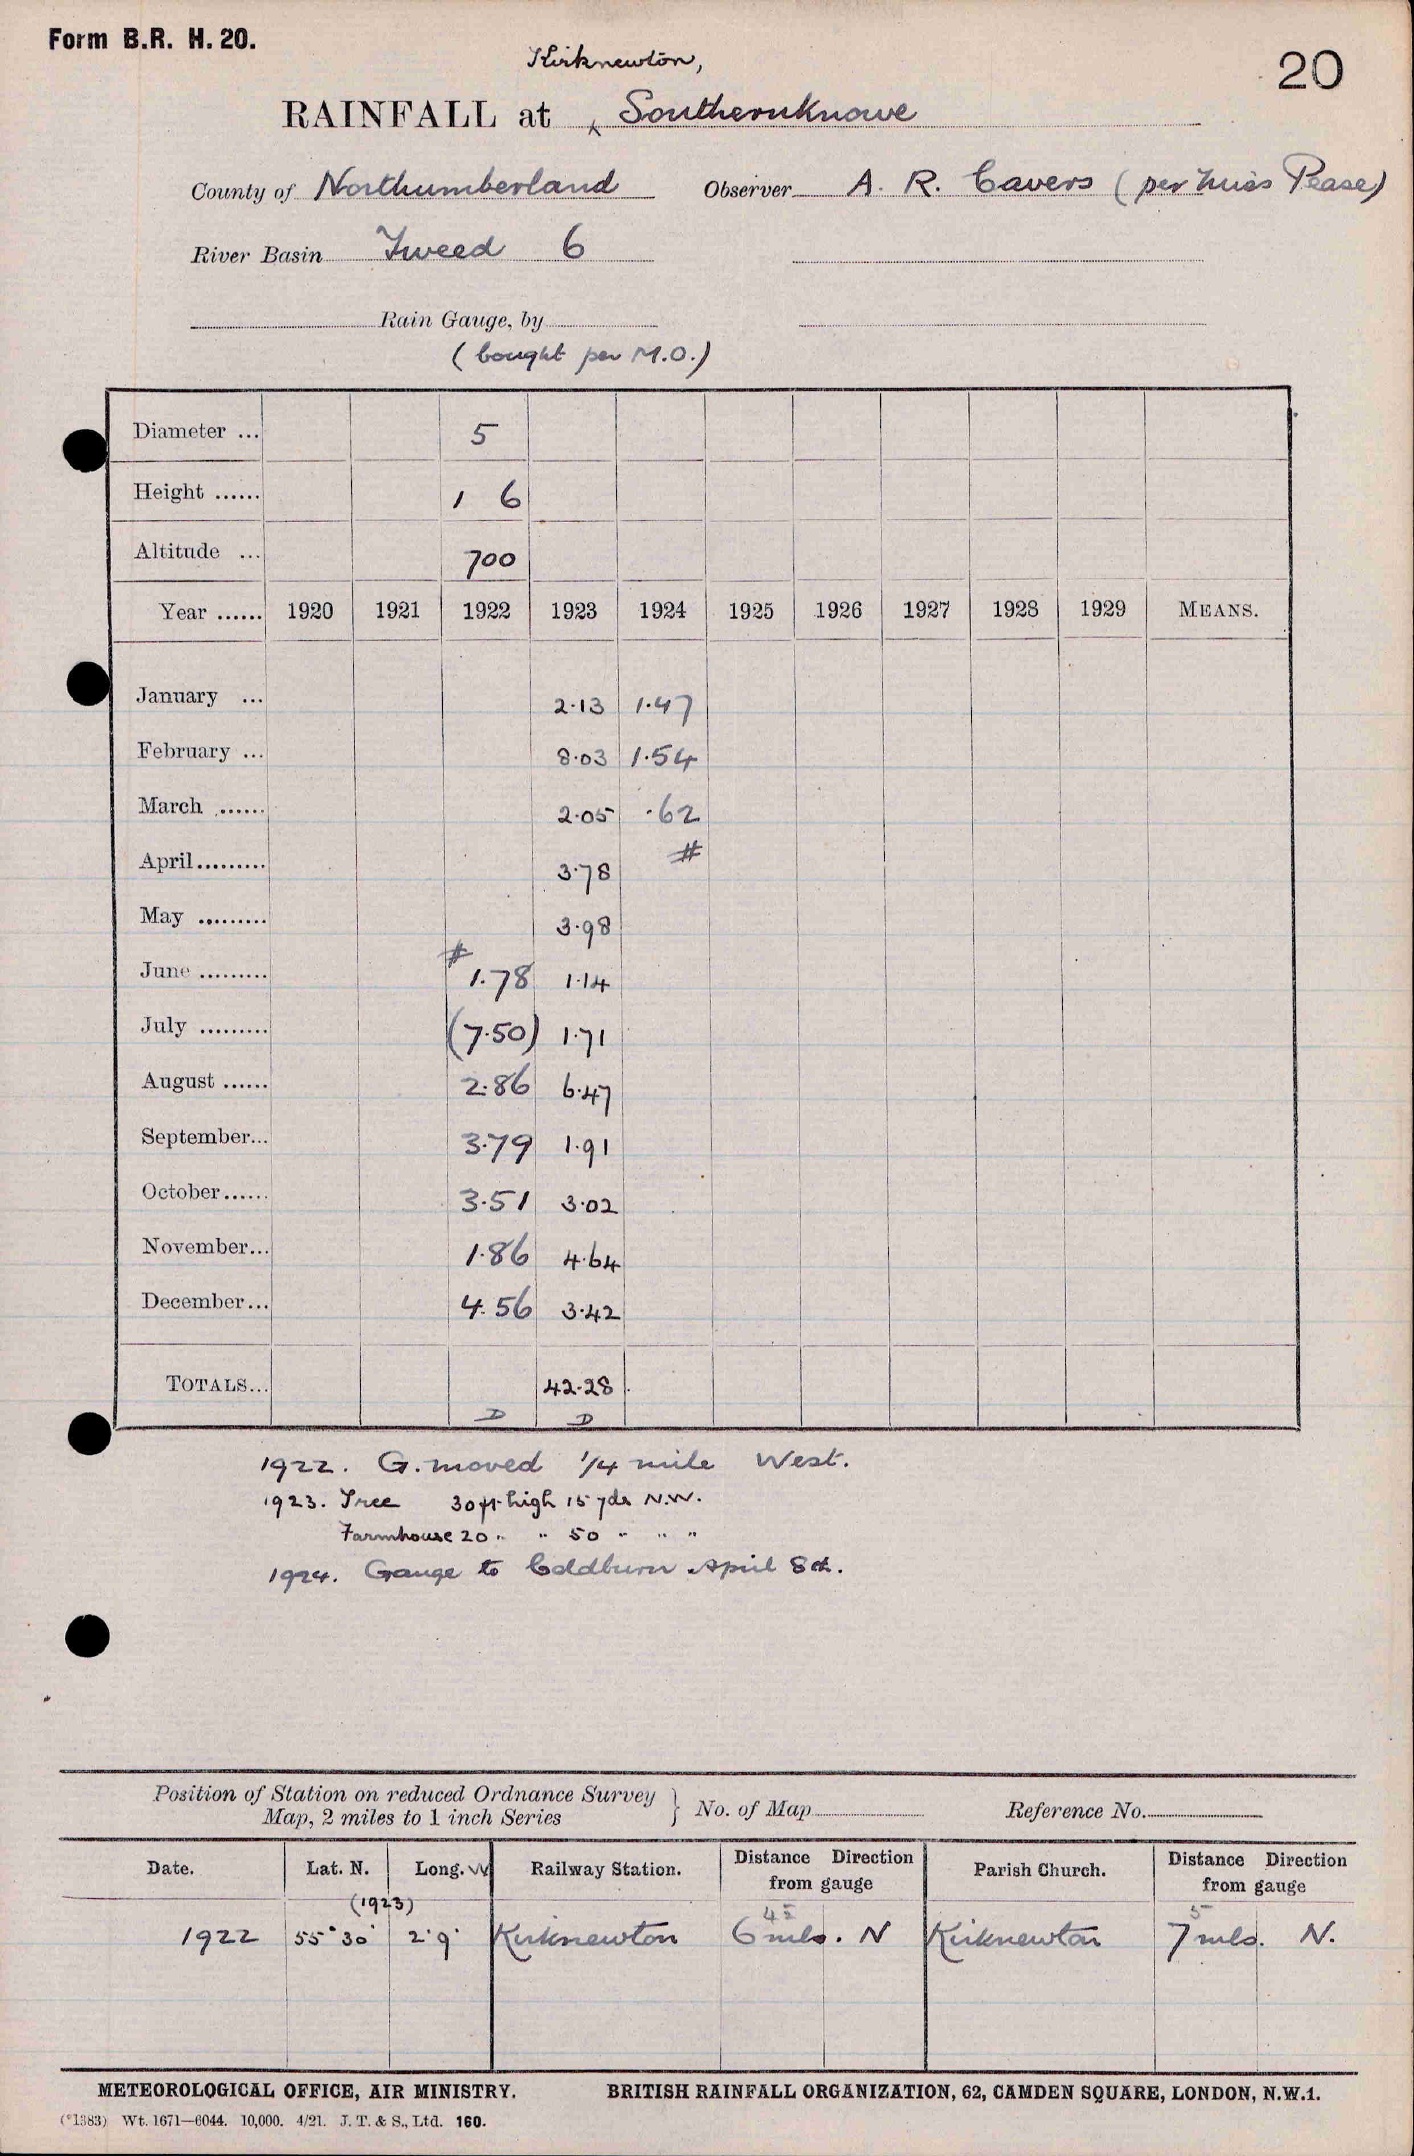 Form B.R. H. 20.
20
Kirknewton,
RAINFALL at ‸ Southernknowe
County of Northumberland Observer A. R. Cavers (per Miss Pease)
River Basin Tweed 6
Rain Gauge, by
(bought per M.O.)
Diameter ... 5
Height ...... 1 6
Altitude ... 700
Year ...... 1920 1921 1922 1923 1924 1925 1926 1927 1928 1929 MEANS.
January ... 2.13 1.47
February ... 8.03 1.54
March ...... 2.05 .62
April......... 3.78 #
May ......... 3.98
June ......... # 1.78 1.14
July ......... (7.50) 1.71
August ...... 2.86 6.47
September... 3.79 1.91
October...... 3.51 3.02
November... 1.86 4.64
December... 4.56 3.42
TOTALS... 42.28
D D
1922. G. moved 1/4 mile West.
1923. Tree 30 ft. high 15 yds N.W.
Farmhouse 20 " " 50 " " "
1924. Gauge to Coldburn April 8th.
Position of Station on reduced Ordnance Survey
Map, 2 miles to 1 inch Series } No. of Map Reference No.
Date. Lat. N. Long. W Railway Station. Distance Direction from gauge Parish Church. Distance Direction from gauge
(1923) 5
1922 55° 30' 2° 9' Kirknewton 6 mls. N Kirknewton 7 mls. N.
METEOROLOGICAL OFFICE, AIR MINISTRY. BRITISH RAINFALL ORGANIZATION, 62, CAMDEN SQUARE, LONDON, N.W.1.
(*1383) Wt. 1671—6044. 10,000. 4/21. J. T. & S., Ltd. 160.